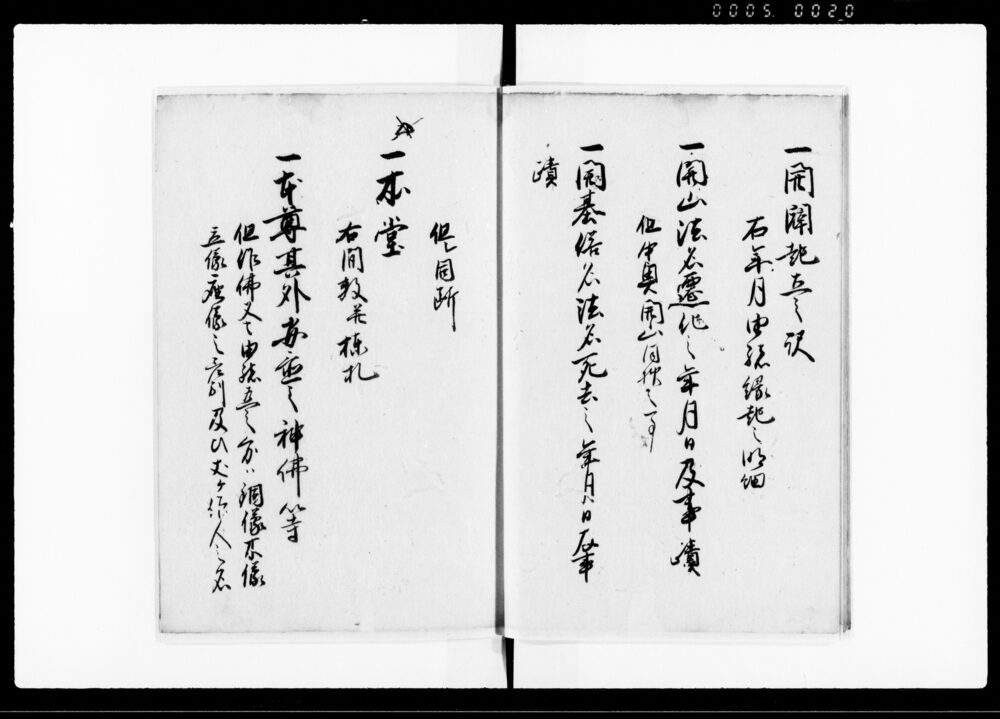 0005. 0020
一開闢起立之訳
右年月由緒縁起之明細
一開山法名遷化之年月日及事蹟
但中興開山同様之事
一開基俗名法名死去之年月日及事
蹟
但同断
一本堂
右間数并棟札
一本尊其外安置之神佛等
但作佛又ハ由緒立之分ハ銅像木像
立像座像之差別及ひ丈ケ作人之名